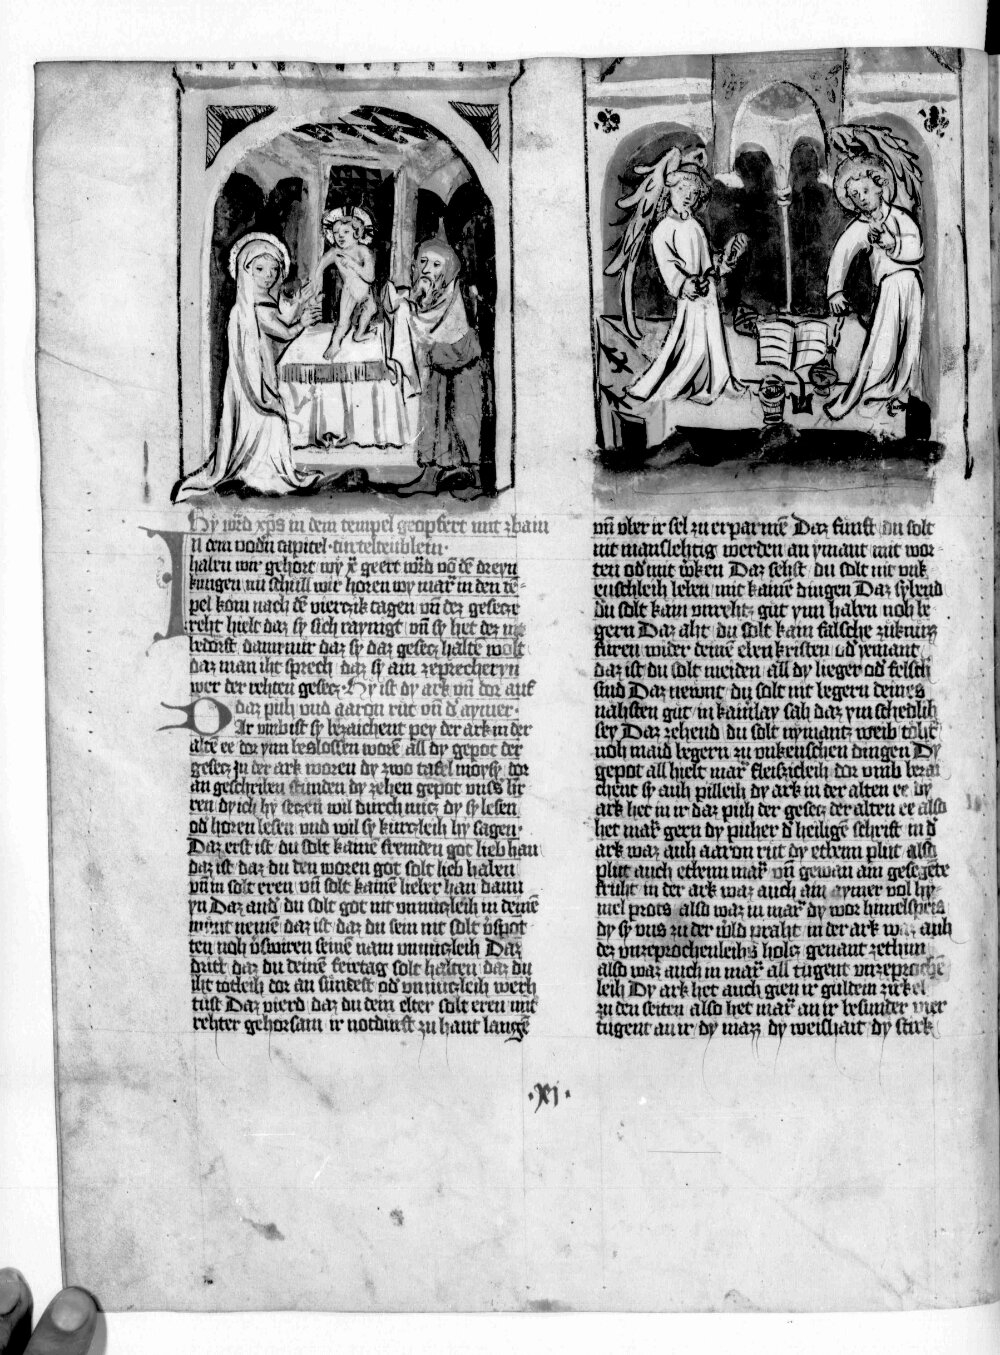 Hy w̄rd xp̄s in dem tempel geopfert mit zbain
In dem vodn̄ capitel turtelteublein·
haben wir gehort wy xp̄ geert w̄rd vō dē dreyn
kunigen nu schull wir horen wy mar̄ in den tē-
pel kom nach dē vierczik tagen vn̄ dez gesecze
reht hielt daz sy sich raynigt vn̄ sy het dez nit
bedorft damit daz sy daz gesecz haltē wolt
daz man iht sprech daz sy ain zeprecheryn
wer der rehten gesecz· Hy ist dy ark vn̄ dor auf
daz puh vnd aaron rut vn̄ d aymer·
Dar vmb ist sy bezaichent pey der ark in der
alten ee dor ynn beslossen worē all dy gepot der
gesecz In der ark woren dy zwo tafel moysy dor
an geschriben stunden dy zehen gepot vnss h̄r
ren dy ich hy seczen wil durch nucz dy sy lesen
od horen lesen vnd wil sy kurczleih hy sagen·
Daz erst ist du solt kainē fremden got lieb han
daz ist daz du den woren got solt lieb haben
vn̄ in solt eren vn̄ solt kainē lieber han dann
yn Daz and̄ du solt got nit vnnuczleih in deinē
munt nemē daz ist daz du sein nit solt v̄spot
ten noh v̄swiren seinē nam vnnuczleih Daz
drit daz du deinē feirtag solt halten daz du
iht totleih dor an sundest od vnnuczleih werh
tust Daz vierd daz du dein elter solt eren mit
rehter gehorsam ir notdurft zu hant langē
vn̄ vber ir sel zu erparmē Daz funft du solt
nit manslehtig werden an ymant mit wor-
ten od mit w̄ken Daz sehst du solt nit vnk
euschleih leben mit kainē dingen Daz sybend
du solt kain vnrehtz gut ynn haben noh be
gern Daz aht du solt kain falsche zuknuz
furen wider deinē eben kristen od yemant
daz ist du solt meiden all dy lieger od felsch
sind Daz newnt du solt nit begern deines
nahsten gut in kainlay sah daz ym schedlih
sey Daz zehend du solt nymantz weib toht̄
noh maid begern zu vnkeuschen dingen Dy
gepot all hielt mar̄ fleiszicleih dor vmb bezai
chent sy auh pilleih dy ark in der alten ee dy
ark het in ir daz puh der gesecz der alten ee also
het mar̄ gern dy puher d heiligē schrift in d
ark waz auh aaron rut dy etwenn plut also
plut auch etwenn mar̄ vn̄ gewan ain gesegēte
fruht in der ark waz auch ain aymer vol hy-
mel prots also waz in mar̄ dy wor himelspeis
dy sy vns zu der w̄ld praht in der ark waz auh
dez vnzeprochenleihs holcz genant zethim
also waz auch in mar̄ all tugent vnzeprochē
leih Dy ark het auch gien ir guldein zirkel
zu den seiten also het mar̄ an ir besunder vier
tugent an ir dy mazz dy weishait dy sterk
·xj·